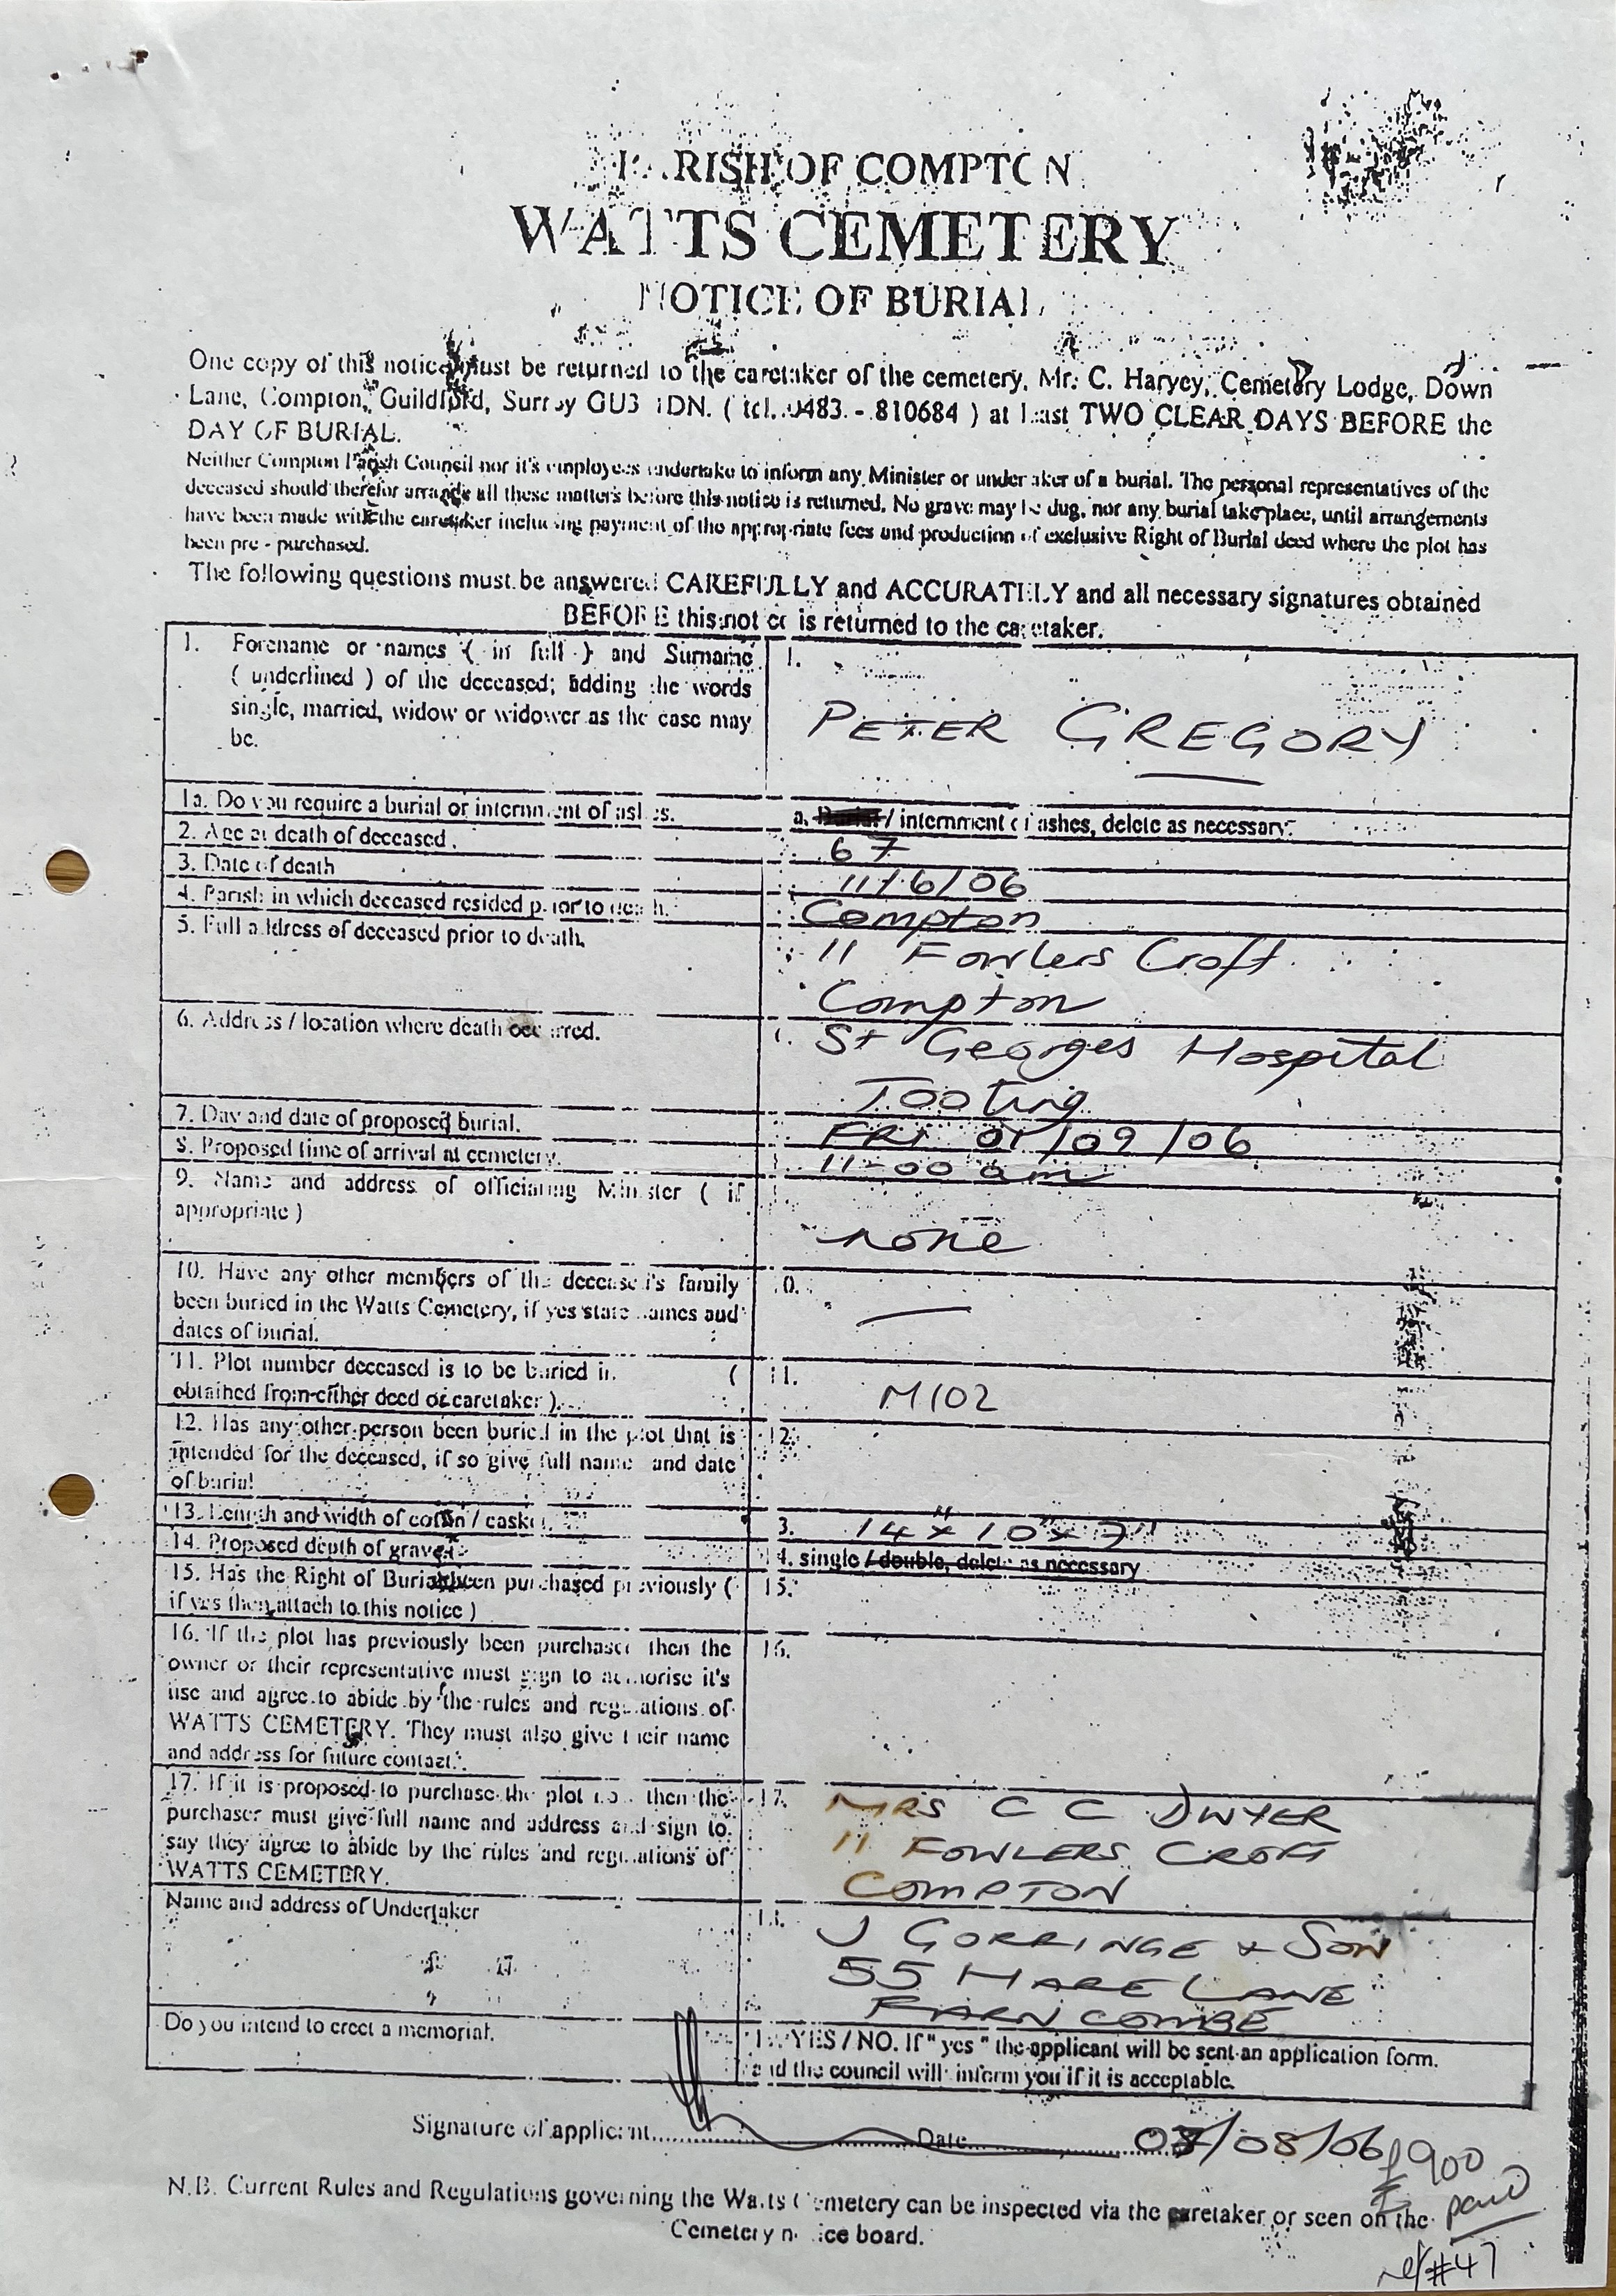 PARISH OF COMPTON
WATTS CEMETERY
NOTICE OF BURIAL
One copy of this notice must be returned to the caretaker of the cemetery, Mr. C. Harvey, Cemetery Lodge, Down
Lane, Compton, Guildford, Surrey GU3 1DN. ( tel. 0483 - 810684 ) at least TWO CLEAR DAYS BEFORE the
DAY OF BURIAL.
Neither Compton Parish Council nor it's employees undertake to inform any Minister or undertaker of a burial. The personal representatives of the
deceased should therefor arrange all these matters before this notice is returned. No grave may be dug, nor any burial take place, until arrangements
have been made with the caretaker including payment of the appropriate fees and production of exclusive Right of Burial deed where the plot has
been pre - purchased.
The following questions must be answered CAREFULLY and ACCURATELY and all necessary signatures obtained
BEFORE this notice is returned to the caretaker.
1. Forename or names ( in full ) and Surname
( underlined ) of the deceased; adding the words
single, married, widow or widower as the case may
be.
1.
PETER GREGORY
1a. Do you require a burial or internment of ashes.
a. Burial / internment of ashes, delete as necessary.
2. Age at death of deceased.
67
3. Date of death
11/6/06
4. Parish in which deceased resided prior to death.
Compton
5. Full address of deceased prior to death.
11 Fowlers Croft
Compton
6. Address / location where death occurred.
St Georges Hospital
Tooting
7. Day and date of proposed burial.
FRI 01/09/06
8. Proposed time of arrival at cemetery.
11-00 am
9. Name and address of officiating Minister ( if
appropriate )
none
10. Have any other members of the deceased's family
been buried in the Watts Cemetery, if yes state names and
dates of burial.
10. —
11. Plot number deceased is to be buried in. (
obtained from either deed or caretaker ).
11.
M102
12. Has any other person been buried in the plot that is
intended for the deceased, if so give full name and date
of burial
12.
13. Length and width of coffin / casket.
3. 14" x 10" x 7"
14. Proposed depth of grave.
14. single / double, delete as necessary
15. Has the Right of Burial been purchased previously (
if yes then attach to this notice )
15.
16. If the plot has previously been purchased then the
owner or their representative must sign to authorise it's
use and agree to abide by the rules and regulations of
WATTS CEMETERY. They must also give their name
and address for future contact.
16.
17. If it is proposed to purchase the plot now then the
purchaser must give full name and address and sign to
say they agree to abide by the rules and regulations of
WATTS CEMETERY.
17. MRS C C DWYER
11 FOWLERS CROFT
COMPTON
Name and address of Undertaker
18. J GORRINGE & SON
55 HARE LANE
FARNCOMBE
Do you intend to erect a memorial.
YES / NO. If " yes " the applicant will be sent an application form.
and the council will inform you if it is acceptable.
Signature of applicant Date 07/08/06
£900
paid
N.B. Current Rules and Regulations governing the Watts Cemetery can be inspected via the caretaker or seen on the
Cemetery notice board.
ref #47